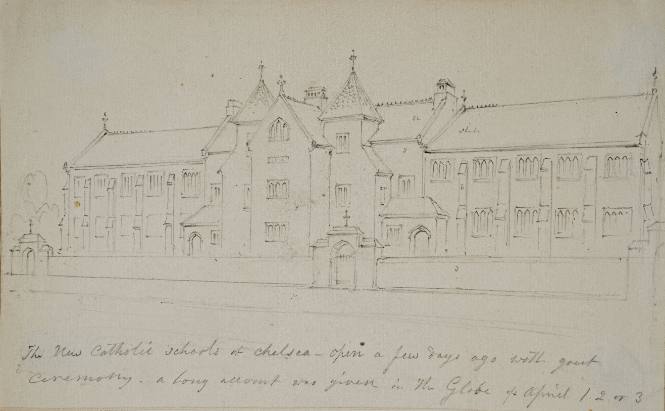 The New Catholic Schools at Chelsea - open a few days ago with great
Ceremony - a long account was given in The Globe of April 1. 2 or 3